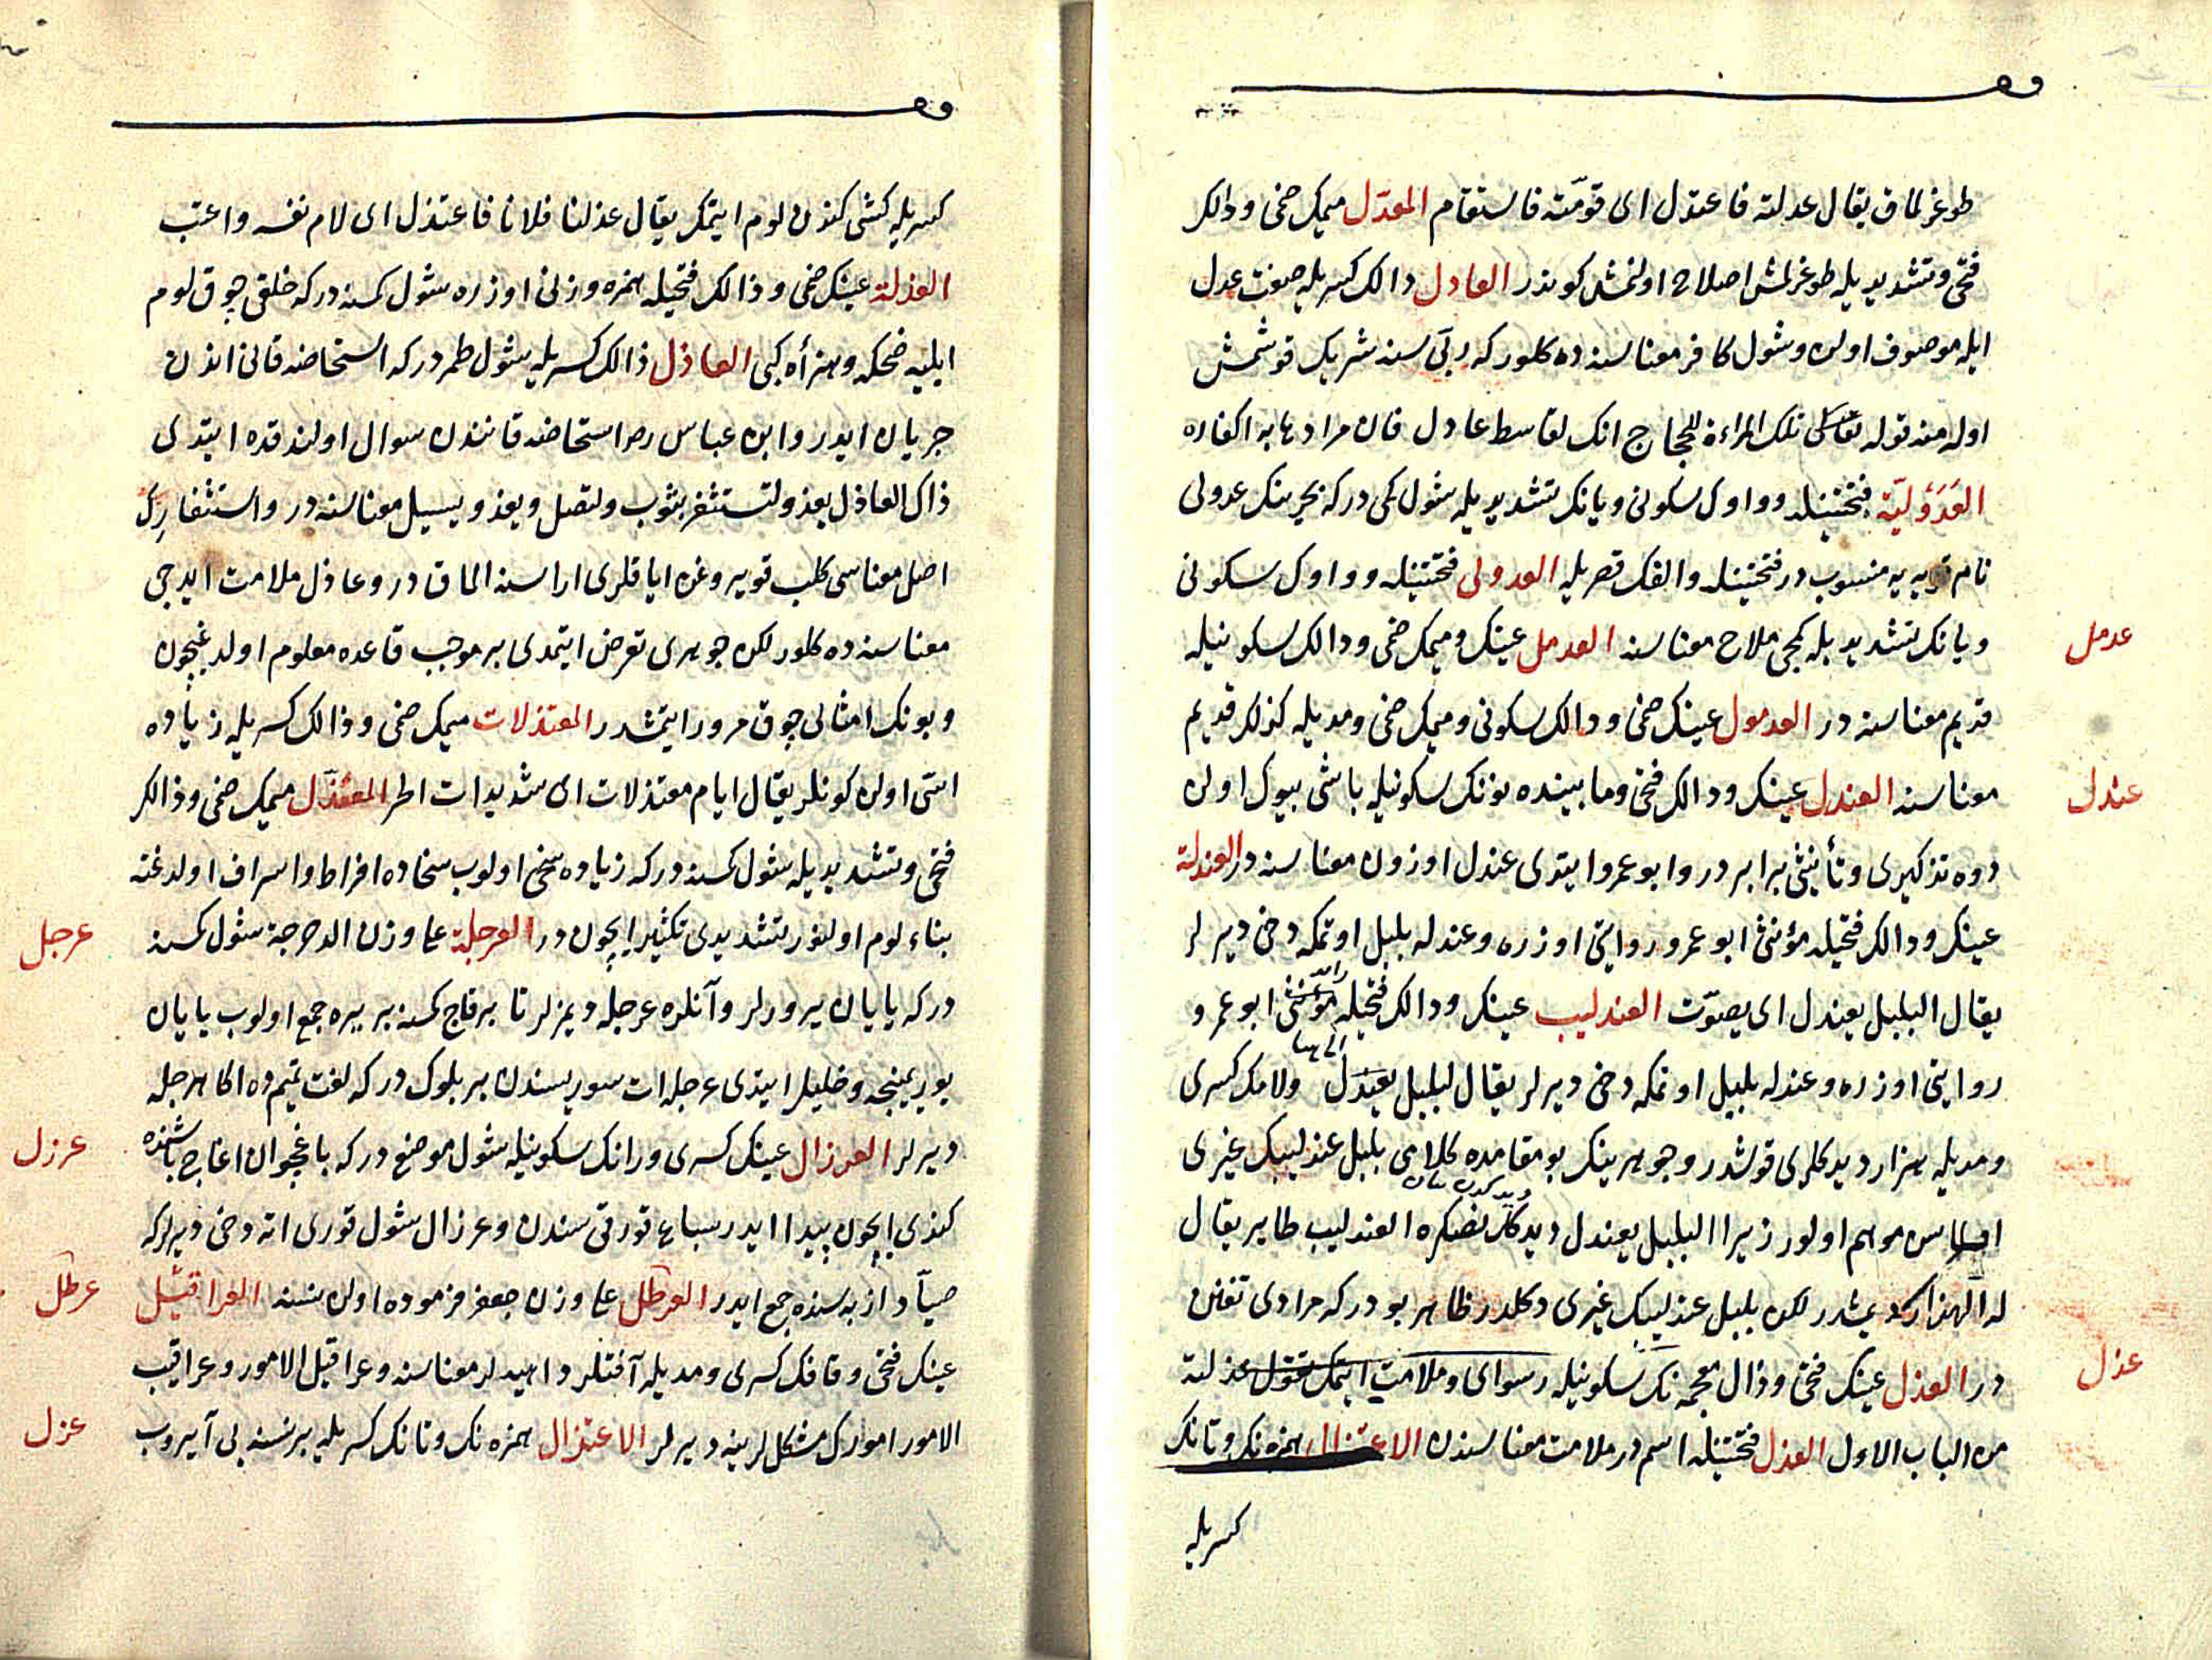 طوغرلماق يقال عدلته فاعتدل اى قومّته فاستقام المعدّل ميمك ضمى ودالك
فتحى وتشديديله طوغرلمش اصلاح اولنمش كوندر العادل دالك كسريله صفت عدل
ايله موصوف اولن وشول كافر معناسنه ده كلور كه ربّى سنه شريك قوشمش
اوله منه قوله تعالى تلك المراءة للحجاج انك لقاسط عادل فان مرادها به اكفاره
العَدَوْليّة فتحتينله وواوك سكونى ويانك تشديديله شول كمى دركه بحرينك عدولى
نام قريه يه منسوب در فتحتينله والفك قصريله العدولى فتحتينله وواوك سكونى
ويانك تشديديله كمجى ملاح معناسنه العدمل عينك وميمك ضمى ودالك سكونيله
عدمل
قديم معناسنه در العدمول عينك ضمى ودالك سكونى وميمك ضمى ومديله كذلك قديم
معناسنه العندل عينك ودالك فتحى ومابينده نونك سكونيله باشى بيوك اولن
عندل
دوه تذكيرى وتأنيثى برابر در وابو عمرو ايتدى عندل اوزون معناسنه در العندلة
عينك ودالك فتحيله مؤنثى ابو عمرو روايتى اوزره وعندله بلبل اوتمكه دخى ديرلر
يقال البلبل يعندل اى يصوّت العندليب عينك ودالك فتحيله مؤنثى ابو عمرو
روايتى اوزره وعندله بلبل اوتمكه دخى ديرلر يقال لبلبل يعندل ولامك كسرى
ومديله هزار ديدكلرى قوشدر وجوهرينك بو مقامده كلامى بلبل عندليبك غيرى
اولماسن موهم اولور زيرا البلبل يعندل ديدكدنصكره العندليب طاير يقال
له الهزار ديمشدر لكن بلبل عندليبك غيرى دكلدر ظاهر بودر كه مرادى تفنن
در العذل عينك فتحى وذال معجمه نك سكونيله رسواى وملامت ايتمك تقول عذلته
عذل
من الباب الاول العذل فتحتينله اسم در ملامت معناسندن الاعتذال همزه نك وتانك
كسريله
كسريله كشى كندن لوم ايتمك يقال عذلنا فلانا فاعتذل اى لام نفسه واعتب
العذلة عينك ضمى وذالك فتحيله همزه وزنى اوزره شول كمسنه دركه خلقى چوق لوم
ايليه ضحكه وهزأه كبى العاذل ذالك كسريله شول طمر دركه استحاضه قانى اندن
جريان ايدر وابن عباس رضـ استحاضه قانندن سوال اولندقده ايتدى
ذاك العاذل يعذو لتستثفر بثوب ولتصل ويعذو يسيل معناسنه در واستثفارك
اصل معناسى كلب قويروغن اياقلرى اراسنه المق در وعاذل ملامت ايديجى
معناسنه ده كلور لكن جوهرى تعرض ايتمدى بر موجب قاعده معلوم اولديغيچون
وبونك امثالى چوق مرور ايتمشدر المعتذلات ميمك ضمى وذالك كسريله زياده
اسّى اولن كونلر يقال ايام معتذلات اى شديدات الحر المعذّل ميمك ضمى وذالك
فتحى وتشديديله شول كمسنه دركه زياده سخى اولوب سخاده افراط واسراف اولدغنه
بناء لوم اولنور تشديدى تكثير ايچون در العرجلة على وزن الدحرجة شول كمسنه
عرجل
دركه يايان يرورلر وآنلره عرجله ديمزلر تا برقاج كمسنه بر يره جمع اولوب يايان
يوريمينجه وخليل ايتدى عرجله ات سوريسندن بر بلوك دركه لغت تميمده اكا هرجله
ديرلر العرزال عينك كسرى ورانك سكونيله شول موضع دركه باغجوان اغاج باشنده
عرزل
كندى ايچون پيدا ايدر سباع قورقى سندن وعرزال شول قورى اته دخى ديرلركه
صيّاد از به سنده جمع ايدر العرطل على وزن جعفر فرموده اولن نسنه العراقيل
عرطل
عينك فتحى وقافك كسرى ومديله آفتلر داهيه لر معناسنه وعراقيل الامور وعراقيب
الامور امورك مشكللرينه ديرلر الاعتزال همزه نك وتانك كسريله بر نسنه يى آيروب
عزل